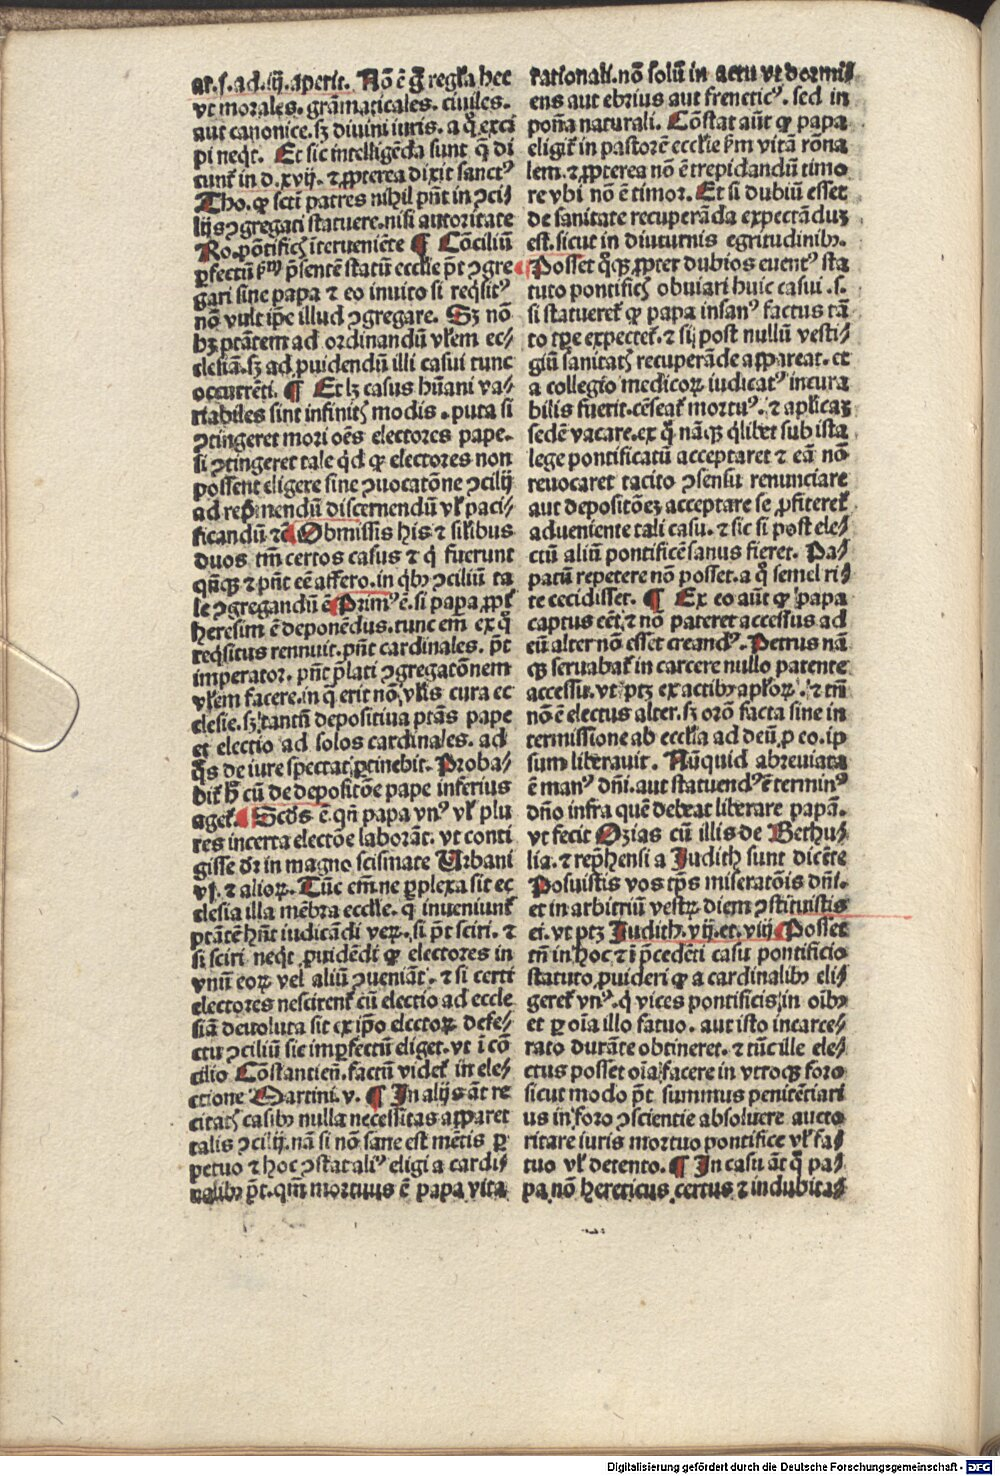 ar.s.ad.iij.aperit. Nō ē g̃ regl̃a hec
vt morales. grãmaticales. ciuiles.
aut canonice.sꝫ diuini iuris. a q̃ exci
pi neqͥt. Et sic intelligēda sunt q̃ di
cunt̃ in d.xvij. ⁊ ꝓpterea dixit sanctꝰ
Tho. ꝙ scti patres nihil pñt in ꝯci⸗
lijs ꝯgregati statuere.nisi autoritate
Ro.pōtificꝭ īterueniēte ¶ Cōciliū
ꝑfectū ẜm p̃sentē statū ecclie p̃t ꝯgre
gari sine papa ⁊ eo inuito si reqͥsitꝰ
nō vult ip̃e illud ꝯgregare. Sꝫ nō
hꝫ ptãtem ad ordinandū vl̃em ec⸗
clesiã.sꝫ ad ꝓuidendū illi casui tunc
occurrēti. ¶ Et lꝫ casus hūani va⸗
riabiles sint infinitꝭ modis . puta si
ꝯtingeret mori oēs electores pape.
si ꝯtingeret tale qͥd ꝙ electores non
possent eligere sine ꝯuocatōne ꝯcilij
ad rep̃mendū discernendū vl̃ paci⸗
ficandū ⁊c̃ Obmissis his ⁊ silibus
duos tm̃ certos casus ⁊ qͥ fuerunt
qñqꝫ ⁊ pñt eē assero.in qͥbꝰ ꝯciliū ta
le ꝯgregandū ē Primꝰ ē. si papa ꝓpt̃
heresim ē deponēdus.tunc em̃ ex q̃
reqͥsitus rennuit.pñt cardinales. p̃t
imperator. pñt p̃lati ꝯgregatōnem
vl̃em facere.in q̃ erit nō vl̃is cura ec
clesie.sꝫ tantū depositiua ptãs pape
et electio ad solos cardinales. ad
q̃s de iure spectat ꝑtinebit. Proba⸗
bit̃ h̃ cū de depositōe pape inferius
aget̃. Scd̃s ē.qñ papa vnꝰ vl̃ plu
res incerta electōe laborãt. vt conti
gisse dr̃ in magno scismate Urbani
vj. ⁊ alioꝝ. Tūc em̃ ne ꝑplexa sit ec
clesia illa mēbra ecclie. q̃ inueniunt̃
ptãtē hñt iudicãdi veꝝ.si p̃t sciri. ⁊
si sciri neqͥt ꝓuidēdi ꝙ electores in
vnū eoꝝ vel aliū ꝯueniãt. ⁊ si certi
electores nescirent̃ cū electio ad eccle
siã deuoluta sit ex ip̃o electoꝝ defe⸗
ctu ꝯciliū sic imꝑfectū eliget. vt ī cō
cilio Cōstantieñ.factū videt̃ in ele⸗
ctione Martini.v. ¶ In alijs ãt re
citatꝭ casibꝰ nulla necessitas apparet
talis ꝯcilij.nã si nō sane est mētis ꝑ
petuo ⁊ hoc ꝯstat aliꝰ eligi a cardi⸗
nalibꝰ p̃t.qm̃ mortuus ē papa vita
rationali.nō solū in actu vt dormi⸗
ens aut ebrius aut freneticꝰ. sed in
poña naturali. Cōstat aūt ꝙ papa
eligit̃ in pastorē ecclie ẜm vitã rōna
lem.⁊ ꝓpterea nō ē trepidandū timo
re vbi nō ē timor. Et si dubiū esset
de sanitate recuperãda expectãduꝫ
est.sicut in diuturnis egritudinibꝰ.
Posset qͦqꝫ ꝓpter dubios euentꝰ sta
tuto pontificꝭ obuiari huic casui .s.
si statueret̃ ꝙ papa insanꝰ factus tã
to tp̃e expectet̃. ⁊ si post nullū vesti⸗
giū sanitatꝭ recuperãde appareat. et
a collegio medicoꝝ iudicatꝰ incura
bilis fuerit.cēseat̃ mortuꝰ. ⁊ aplicaꝫ
sedē vacare.ex q̃ nãqꝫ qͥlibet sub ista
lege pontificatū acceptaret ⁊ eã nō
reuocaret tacito ꝯsensu renunciare
aut depositōeꝫ acceptare se ꝓfiteret̃
adueniente tali casu. ⁊ sic si post ele⸗
ctū aliū pontificē sanus fieret. Pa⸗
patū repetere nō posset.a q̃ semel ri⸗
te cecidisset. ¶ Ex eo aūt ꝙ papa
captus eēt.⁊ nō pateret accessus ad
eū alter nō esset creandꝰ. Petrus nã
qꝫ seruabat̃ in carcere nullo patente
accessu.vt ptꝫ ex actibꝰ apl̃oꝝ. ⁊ tm̃
nō ē electus alter.sꝫ orō facta sine in
termissione ab ecclia ad deū ꝓ eo. ip
sum liberauit. Nūquid abreuiata
ē manꝰ dñi.aut statuendꝰ ē terminꝰ
dño infra quē debeat liberare papã.
vt fecit Ozias cū illis de Bethu⸗
lia. ⁊ rep̃hensi a Judith sunt dicēte
Posuistis vos tp̃s miseratōis dñi.
et in arbitriū vestꝝ diem ꝯstituistis
ei. vt ptꝫ Judith.vij.et.viij. Posset
tm̃ in hoc ⁊ ī p̃cedēti casu pontificio
statuto ꝓuideri ꝙ a cardinalibꝰ eli⸗
geret̃ vnꝰ. qͥ vices pontificis in oībꝰ
et ꝑ oīa illo fatuo. aut isto incarce⸗
rato durãte obtineret. ⁊ tūc ille ele⸗
ctus posset oīa facere in vtroqꝫ foro
sicut modo p̃t summus penitētiari
us in foro ꝯscientie absoluere aucto
ritate iuris mortuo pontifice vl̃ fa⸗
tuo vl̃ detento. ¶ In casu ãt q̃ pa⸗
pa nō hereticus certus ⁊ indubita⸗
Digitalisierung gefördert durch die Deutsche Forschungsgemeinschaft - DFG